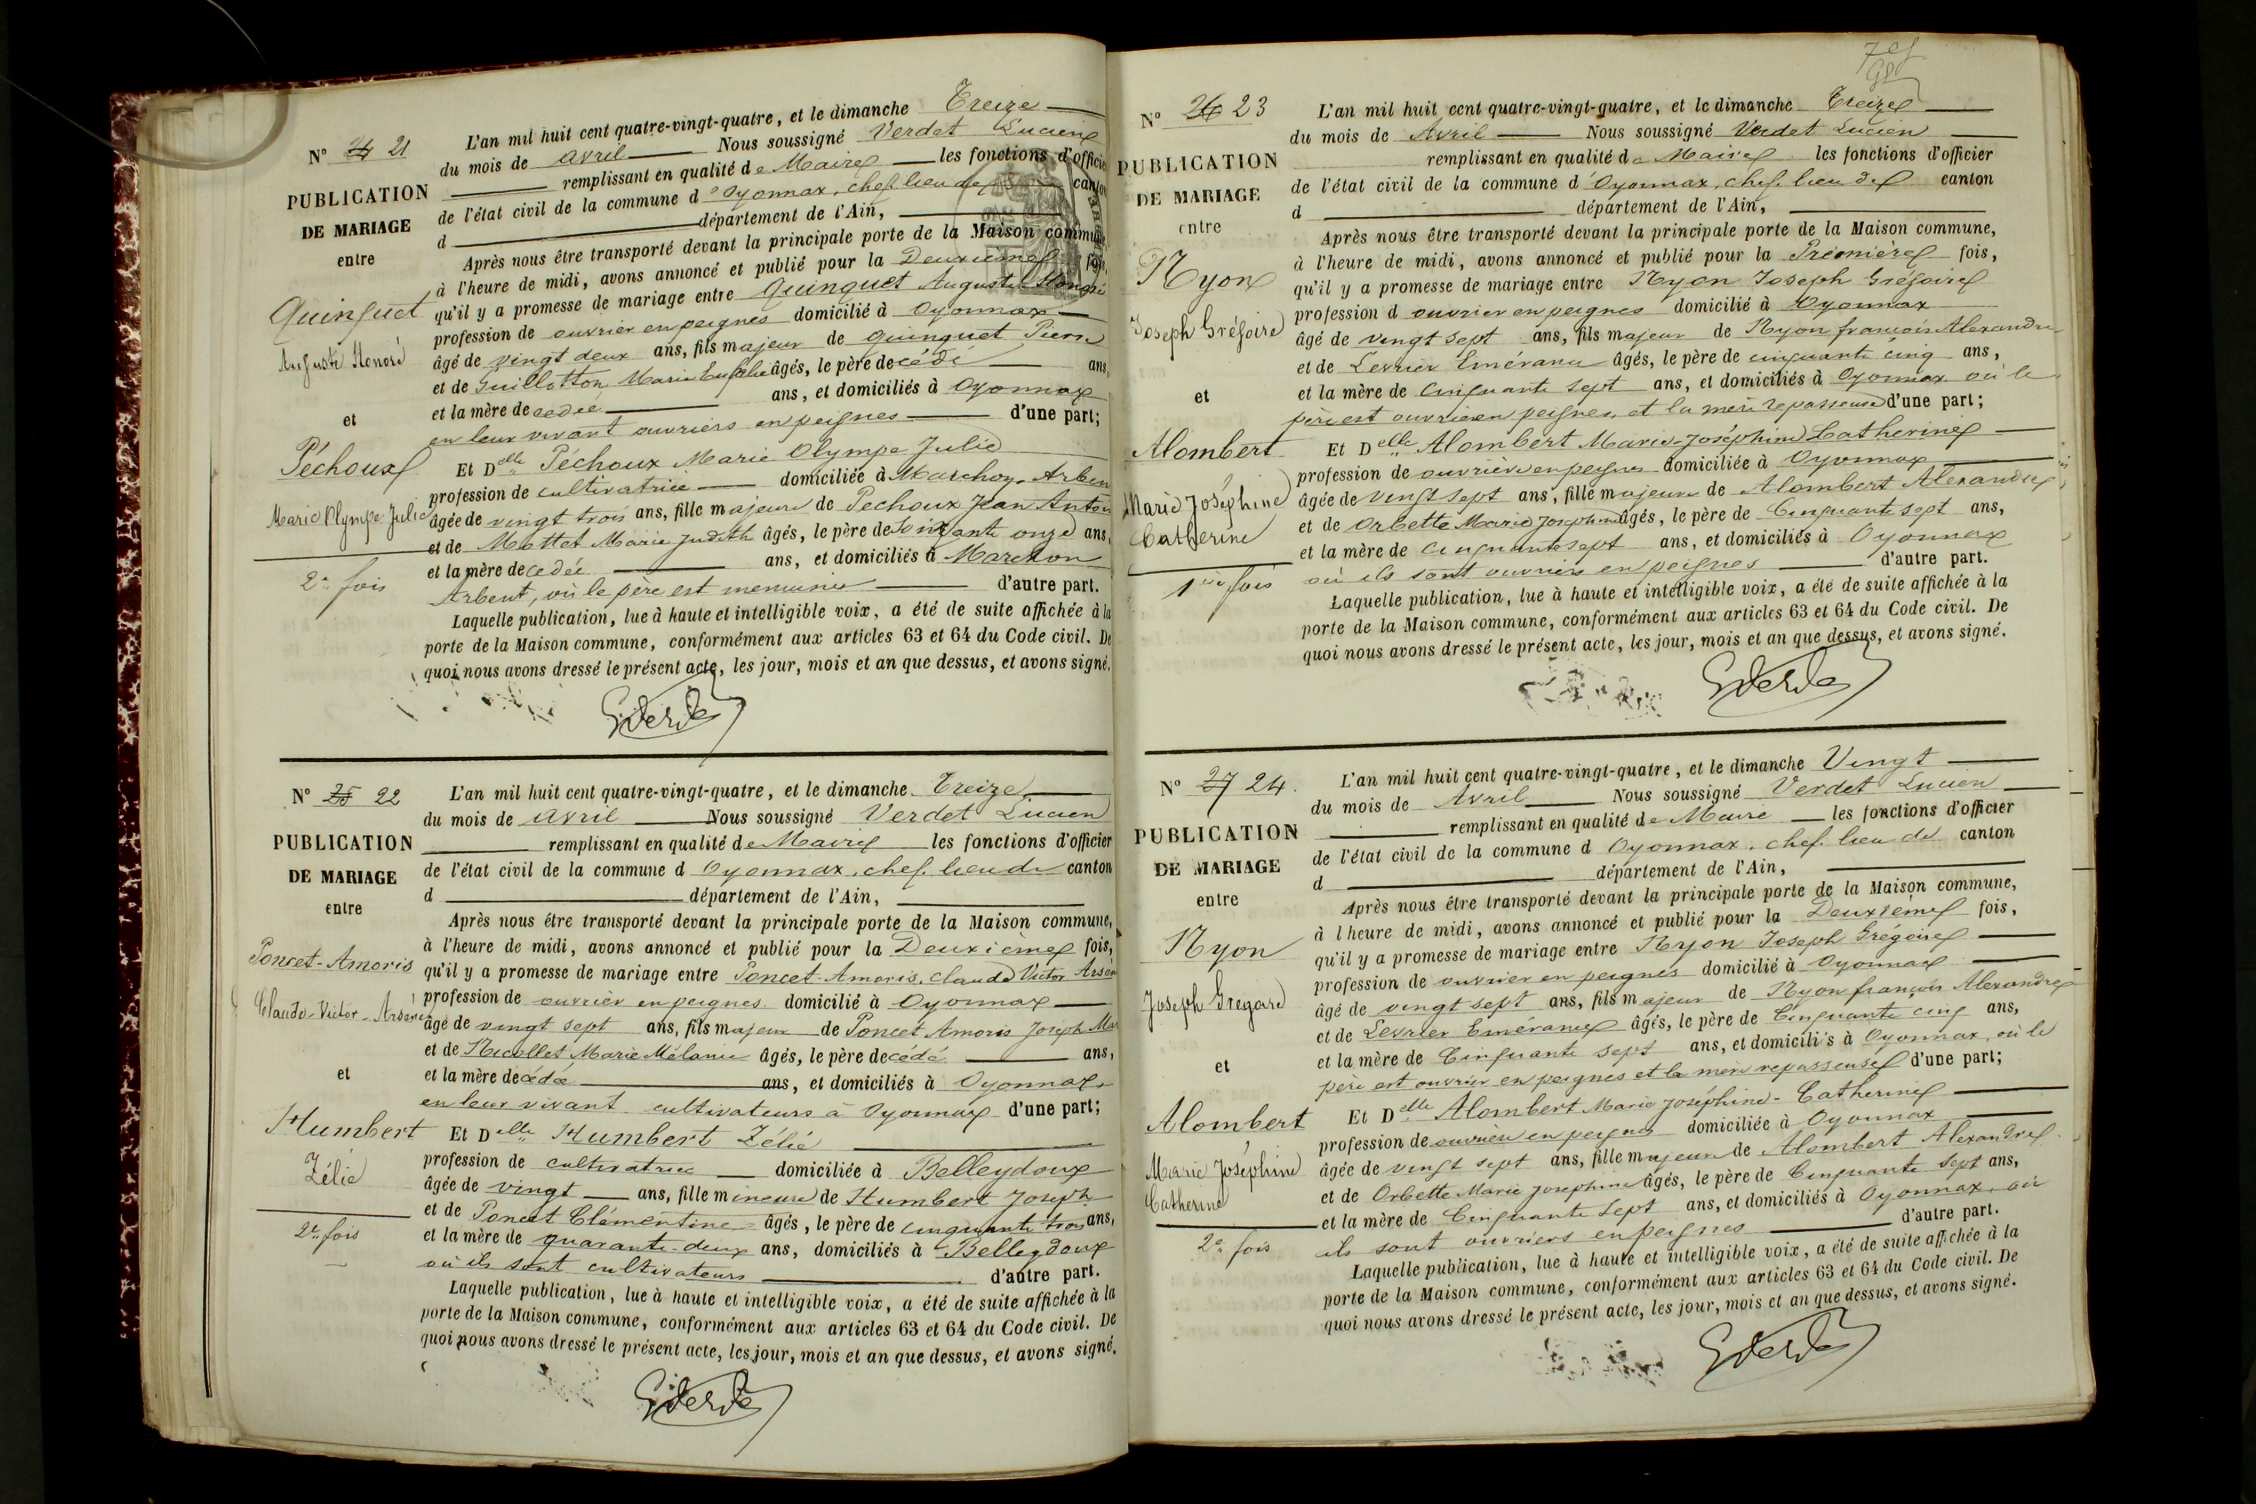 N° 24 21
PUBLICATION
DE MARIAGE
entre
Quinquet
Auguste Honoré
et
Péchoux
Marie Olympe Julie
2e fois
L'an mil huit cent quatre-vingt-quatre, et le dimanche Treize
du mois de avril Nous soussigné Verdet Lucien
remplissant en qualité de Maire les fonctions d'officier
de l'état civil de la commune d'Oyonnax, chef lieu de canton
d département de l'Ain,
Après nous être transporté devant la principale porte de la Maison commune,
à l'heure de midi, avons annoncé et publié pour la Deuxième fois,
qu'il y a promesse de mariage entre Quinquet Auguste Honoré
profession de ouvrier en peignes domicilié à Oyonnax
âgé de vingt deux ans, fils majeur de Quinquet Pierre
et de Guillotton Marie âgés, le père decédé ans,
et la mère decedée ans, et domiciliés à Oyonnax
en leur vivant ouvriers en peignes d'une part;
Et Delle Péchoux Marie Olympe Julie
profession de cultivatrice domiciliée à Marchon, Arbent
âgée de vingt trois ans, fille majeure de Pechoux Jean Antoi
et de Mottet Marie Judith âgés, le père de Soixante onze ans,
et la mère decedée ans, et domiciliés à Marchon
Arbent, où le père est menuisier d'autre part.
Laquelle publication, lue à haute et intelligible voix, a été de suite affichée à la
porte de la Maison commune, conformément aux articles 63 et 64 du Code civil. De
quoi nous avons dressé le présent acte, les jour, mois et an que dessus, et avons signé.
N° 25 22
PUBLICATION
DE MARIAGE
entre
Poncet-Amoris
Claude-Victor-Arsène
et
Humbert
Zélie
2e fois
L'an mil huit cent quatre-vingt-quatre, et le dimanche Treize
du mois de avril Nous soussigné Verdet Lucien
remplissant en qualité de Maire les fonctions d'officier
de l'état civil de la commune d Oyonnax, chef lieu de canton
d département de l'Ain,
Après nous être transporté devant la principale porte de la Maison commune,
à l'heure de midi, avons annoncé et publié pour la Deuxième fois,
qu'il y a promesse de mariage entre Poncet-Amoris, Claude Victor Arsèn
profession de ouvrier en peignes domicilié à Oyonnax
âgé de vingt sept ans, fils majeur de Poncet Amoris Joseph Mar
et de Nicollet Marie Mélanie âgés, le père decédé ans,
et la mère decédée ans, et domiciliés à Oyonnax
en leur vivant cultivateurs à Oyonnax d'une part;
Et Delle Humbert Zélie
profession de cultivatrice domiciliée à Belleydoux
âgée de vingt ans, fille mineure de Humbert Joseph
et de Poncet Clémentine âgés, le père de cinquante trois ans,
et la mère de quarante-deux ans, domiciliés à Belleydoux
où ils sont cultivateurs d'autre part.
Laquelle publication, lue à haute et intelligible voix, a été de suite affichée à la
porte de la Maison commune, conformément aux articles 63 et 64 du Code civil. De
quoi nous avons dressé le présent acte, les jour, mois et an que dessus, et avons signé.
N° 26 23
PUBLICATION
DE MARIAGE
entre
Nyon
Joseph Grégoire
et
Alombert
Marie Joséphine
Catherine
1ère fois
L'an mil huit cent quatre-vingt-quatre, et le dimanche Treize
du mois de Avril Nous soussigné Verdet Lucien
remplissant en qualité de Maire les fonctions d'officier
de l'état civil de la commune d'Oyonnax, chef lieu de canton
d département de l'Ain,
Après nous être transporté devant la principale porte de la Maison commune,
à l'heure de midi, avons annoncé et publié pour la Première fois,
qu'il y a promesse de mariage entre Nyon Joseph Grégoire
profession d ouvrier en peignes domicilié à Oyonnax
âgé de vingt sept ans, fils majeur de Nyon françois Alexandre
et de Levrier Emérance âgés, le père de cinquante cinq ans,
et la mère de Cinquante sept ans, et domiciliés à Oyonnax où le
père est ouvrier en peignes et la mère repasseuse d'une part;
Et Delle Alombert Marie-Joséphine Catherine
profession de ouvrière en peignes domiciliée à Oyonnax
âgée de vingt sept ans, fille majeure de Alombert Alexandre
et de Orbette Marie Josephine âgés, le père de Cinquante sept ans,
et la mère de cinquante sept ans, et domiciliés à Oyonnax
où ils sont ouvriers en peignes d'autre part.
Laquelle publication, lue à haute et intelligible voix, a été de suite affichée à la
porte de la Maison commune, conformément aux articles 63 et 64 du Code civil. De
quoi nous avons dressé le présent acte, les jour, mois et an que dessus, et avons signé.
N° 27 24.
PUBLICATION
DE MARIAGE
entre
Nyon
Joseph Gregoire
et
Alombert
Marie Joséphine
Catherine
2e fois
L'an mil huit cent quatre-vingt-quatre, et le dimanche Vingt
du mois de Avril Nous soussigné Verdet Lucien
remplissant en qualité de Maire les fonctions d'officier
de l'état civil de la commune d Oyonnax, chef lieu de canton
d département de l'Ain,
Après nous être transporté devant la principale porte de la Maison commune,
à l'heure de midi, avons annoncé et publié pour la Deuxième fois,
qu'il y a promesse de mariage entre Nyon Joseph Grégoire
profession de ouvrier en peignes domicilié à Oyonnax
âgé de vingt sept ans, fils majeur de Nyon françois Alexandre
et de Levrier Emérance âgés, le père de Cinquante cinq ans,
et la mère de Cinquante sept ans, et domiciliés à Oyonnax, où le
père est ouvrier en peignes et la mère repasseuse d'une part;
Et Delle Alombert Marie Joséphine-Catherine
profession de ouvrière en peignes domiciliée à Oyonnax
âgée de vingt sept ans, fille majeure de Alombert Alexandre
et de Orbette Marie Josephine âgés, le père de Cinquante sept ans,
et la mère de Cinquante sept ans, et domiciliés à Oyonnax, où
ils sont ouvriers en peignes d'autre part.
Laquelle publication, lue à haute et intelligible voix, a été de suite affichée à la
porte de la Maison commune, conformément aux articles 63 et 64 du Code civil. De
quoi nous avons dressé le présent acte, les jour, mois et an que dessus, et avons signé.